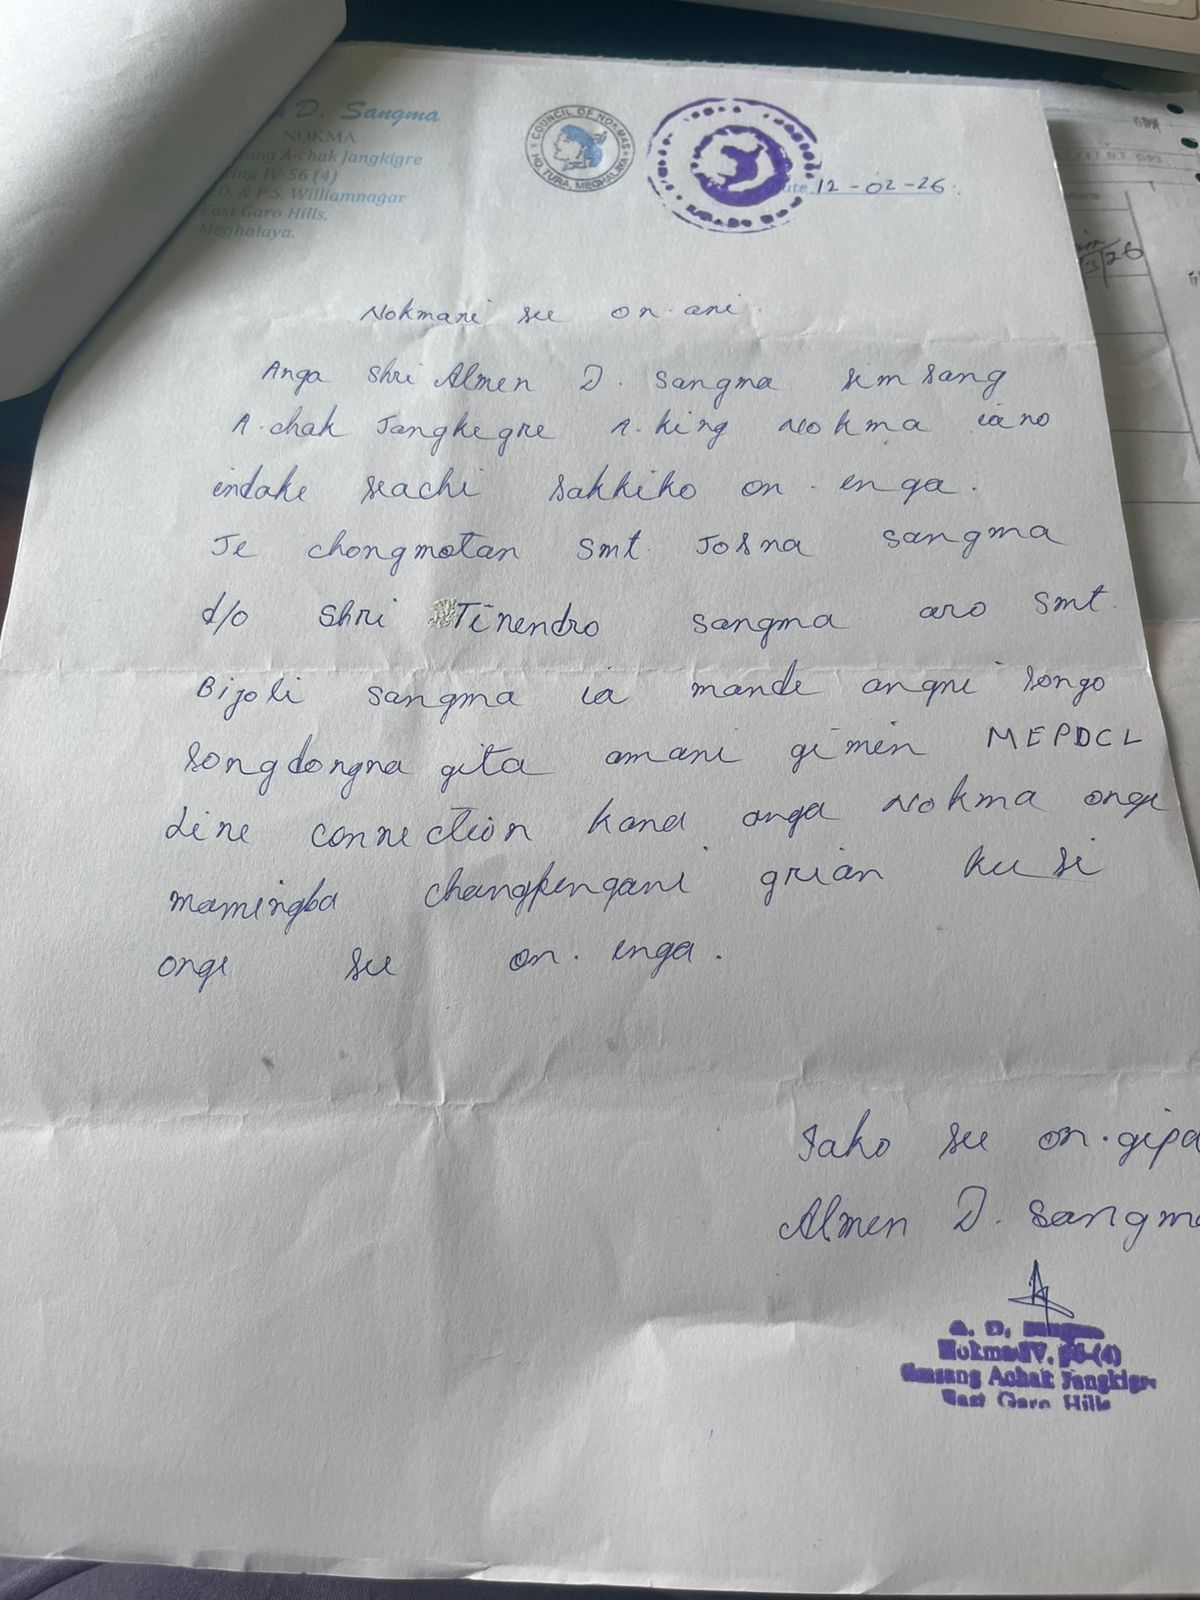 D. Sangma
NOKMA
A·chak Jangkigre
IV-56 (4)
& P.S. Williamnagar
East Garo Hills,
Meghalaya.
COUNCIL OF NOKMAS
HQ. TURA, MEGHALAYA
Date 12-02-26.
Nokmani see on·ani.
Anga Shri Almen D. Sangma Simsang
A·chak Jangkegre A·king Nokma iano
indake seachi sakkiko on·enga.
Je chongmotan Smt. Josna Sangma
d/o Shri Tinendro Sangma aro Smt.
Bijoli Sangma ia mande angni songo
songdongna gita amani gimin MEPDCL
Line connection kana anga Nokma onge
mamingba changpengani grian ku si
onge see on·enga.
Sako see on·gipa
Almen D. Sangma
A. D. Sangma
Nokma IV. 56-(4)
Simsang Achak Jangkigre
East Garo Hills